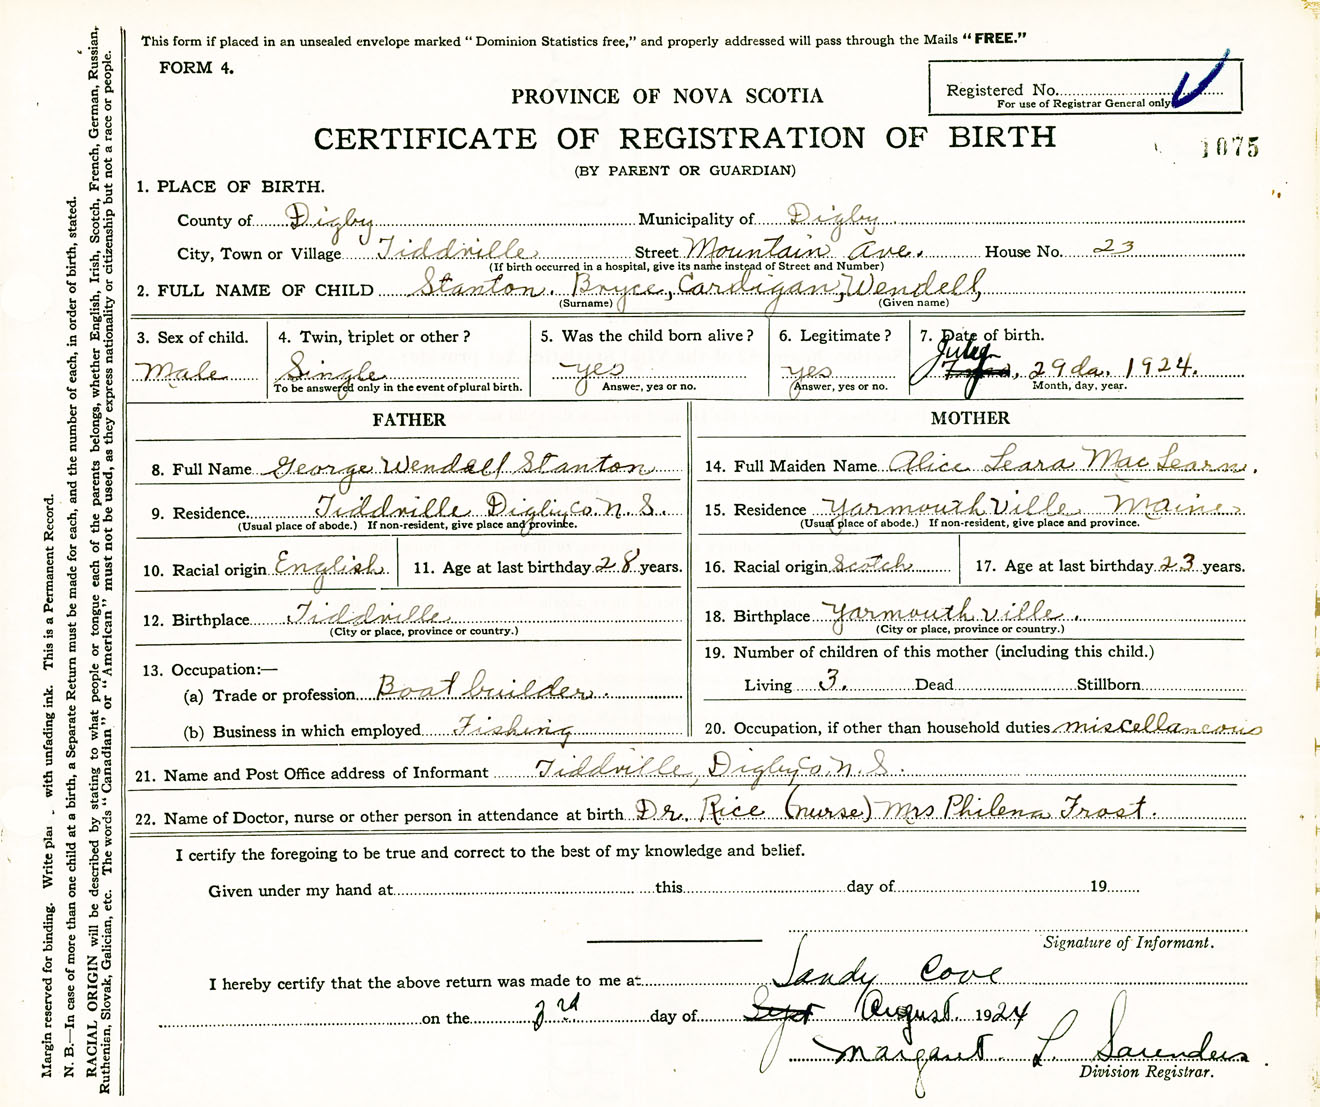 This form if placed in an unsealed envelope marked "Dominion Statistics free," and properly addressed will pass through the Mails "FREE."
FORM 4.
Registered No.
For use of Registrar General only
PROVINCE OF NOVA SCOTIA
CERTIFICATE OF REGISTRATION OF BIRTH
1075
(BY PARENT OR GUARDIAN)
1. PLACE OF BIRTH.
County of Digby Municipality of Digby
City, Town or Village Tiddville Street Mountain Ave. House No. 23
(If birth occurred in a hospital, give its name instead of Street and Number)
2. FULL NAME OF CHILD Stanton. Bryce, Cardigan, Wendell,
(Surname) (Given name)
3. Sex of child. 4. Twin, triplet or other? 5. Was the child born alive? 6. Legitimate? 7. Date of birth.
Male Single yes yes July, 29 da. 1924.
To be answered only in the event of plural birth. Answer, yes or no. Answer, yes or no. Month, day, year.
FATHER MOTHER
8. Full Name George Wendall Stanton 14. Full Maiden Name Alice Leara Mac Learn.
9. Residence Tiddville Digby Co. N. S. 15. Residence Yarmouth Ville Maine
(Usual place of abode.) If non-resident, give place and province. (Usual place of abode.) If non-resident, give place and province.
10. Racial origin English 11. Age at last birthday 28 years. 16. Racial origin Scotch 17. Age at last birthday 23 years.
12. Birthplace Tiddville 18. Birthplace Yarmouth ville.
(City or place, province or country.) (City or place, province or country.)
13. Occupation:— 19. Number of children of this mother (including this child.)
(a) Trade or profession Boat builder. Living 3. Dead Stillborn
(b) Business in which employed Fishing 20. Occupation, if other than household duties miscellaneous
21. Name and Post Office address of Informant Tiddville, Digby Co. N. S.
22. Name of Doctor, nurse or other person in attendance at birth Dr. Rice (nurse) Mrs Philena Frost.
I certify the foregoing to be true and correct to the best of my knowledge and belief.
Given under my hand at this day of 19
Signature of Informant.
I hereby certify that the above return was made to me at Sandy Cove
on the 3rd day of Sept August 1924
Margaret L. Saunders
Division Registrar.
Margin reserved for binding. Write with unfading ink. This is a Permanent Record.
N. B.—In case of more than one child at a birth, a Separate Return must be made for each, and the number of each, in order of birth, stated.
RACIAL ORIGIN will be described by stating to what people or tongue each of the parents belongs, whether English, Irish, Scotch, French, German, Russian,
Ruthenian, Slovak, Galician, etc. The words "Canadian" or "American" must not be used, as they express nationality or citizenship but not a race or people.